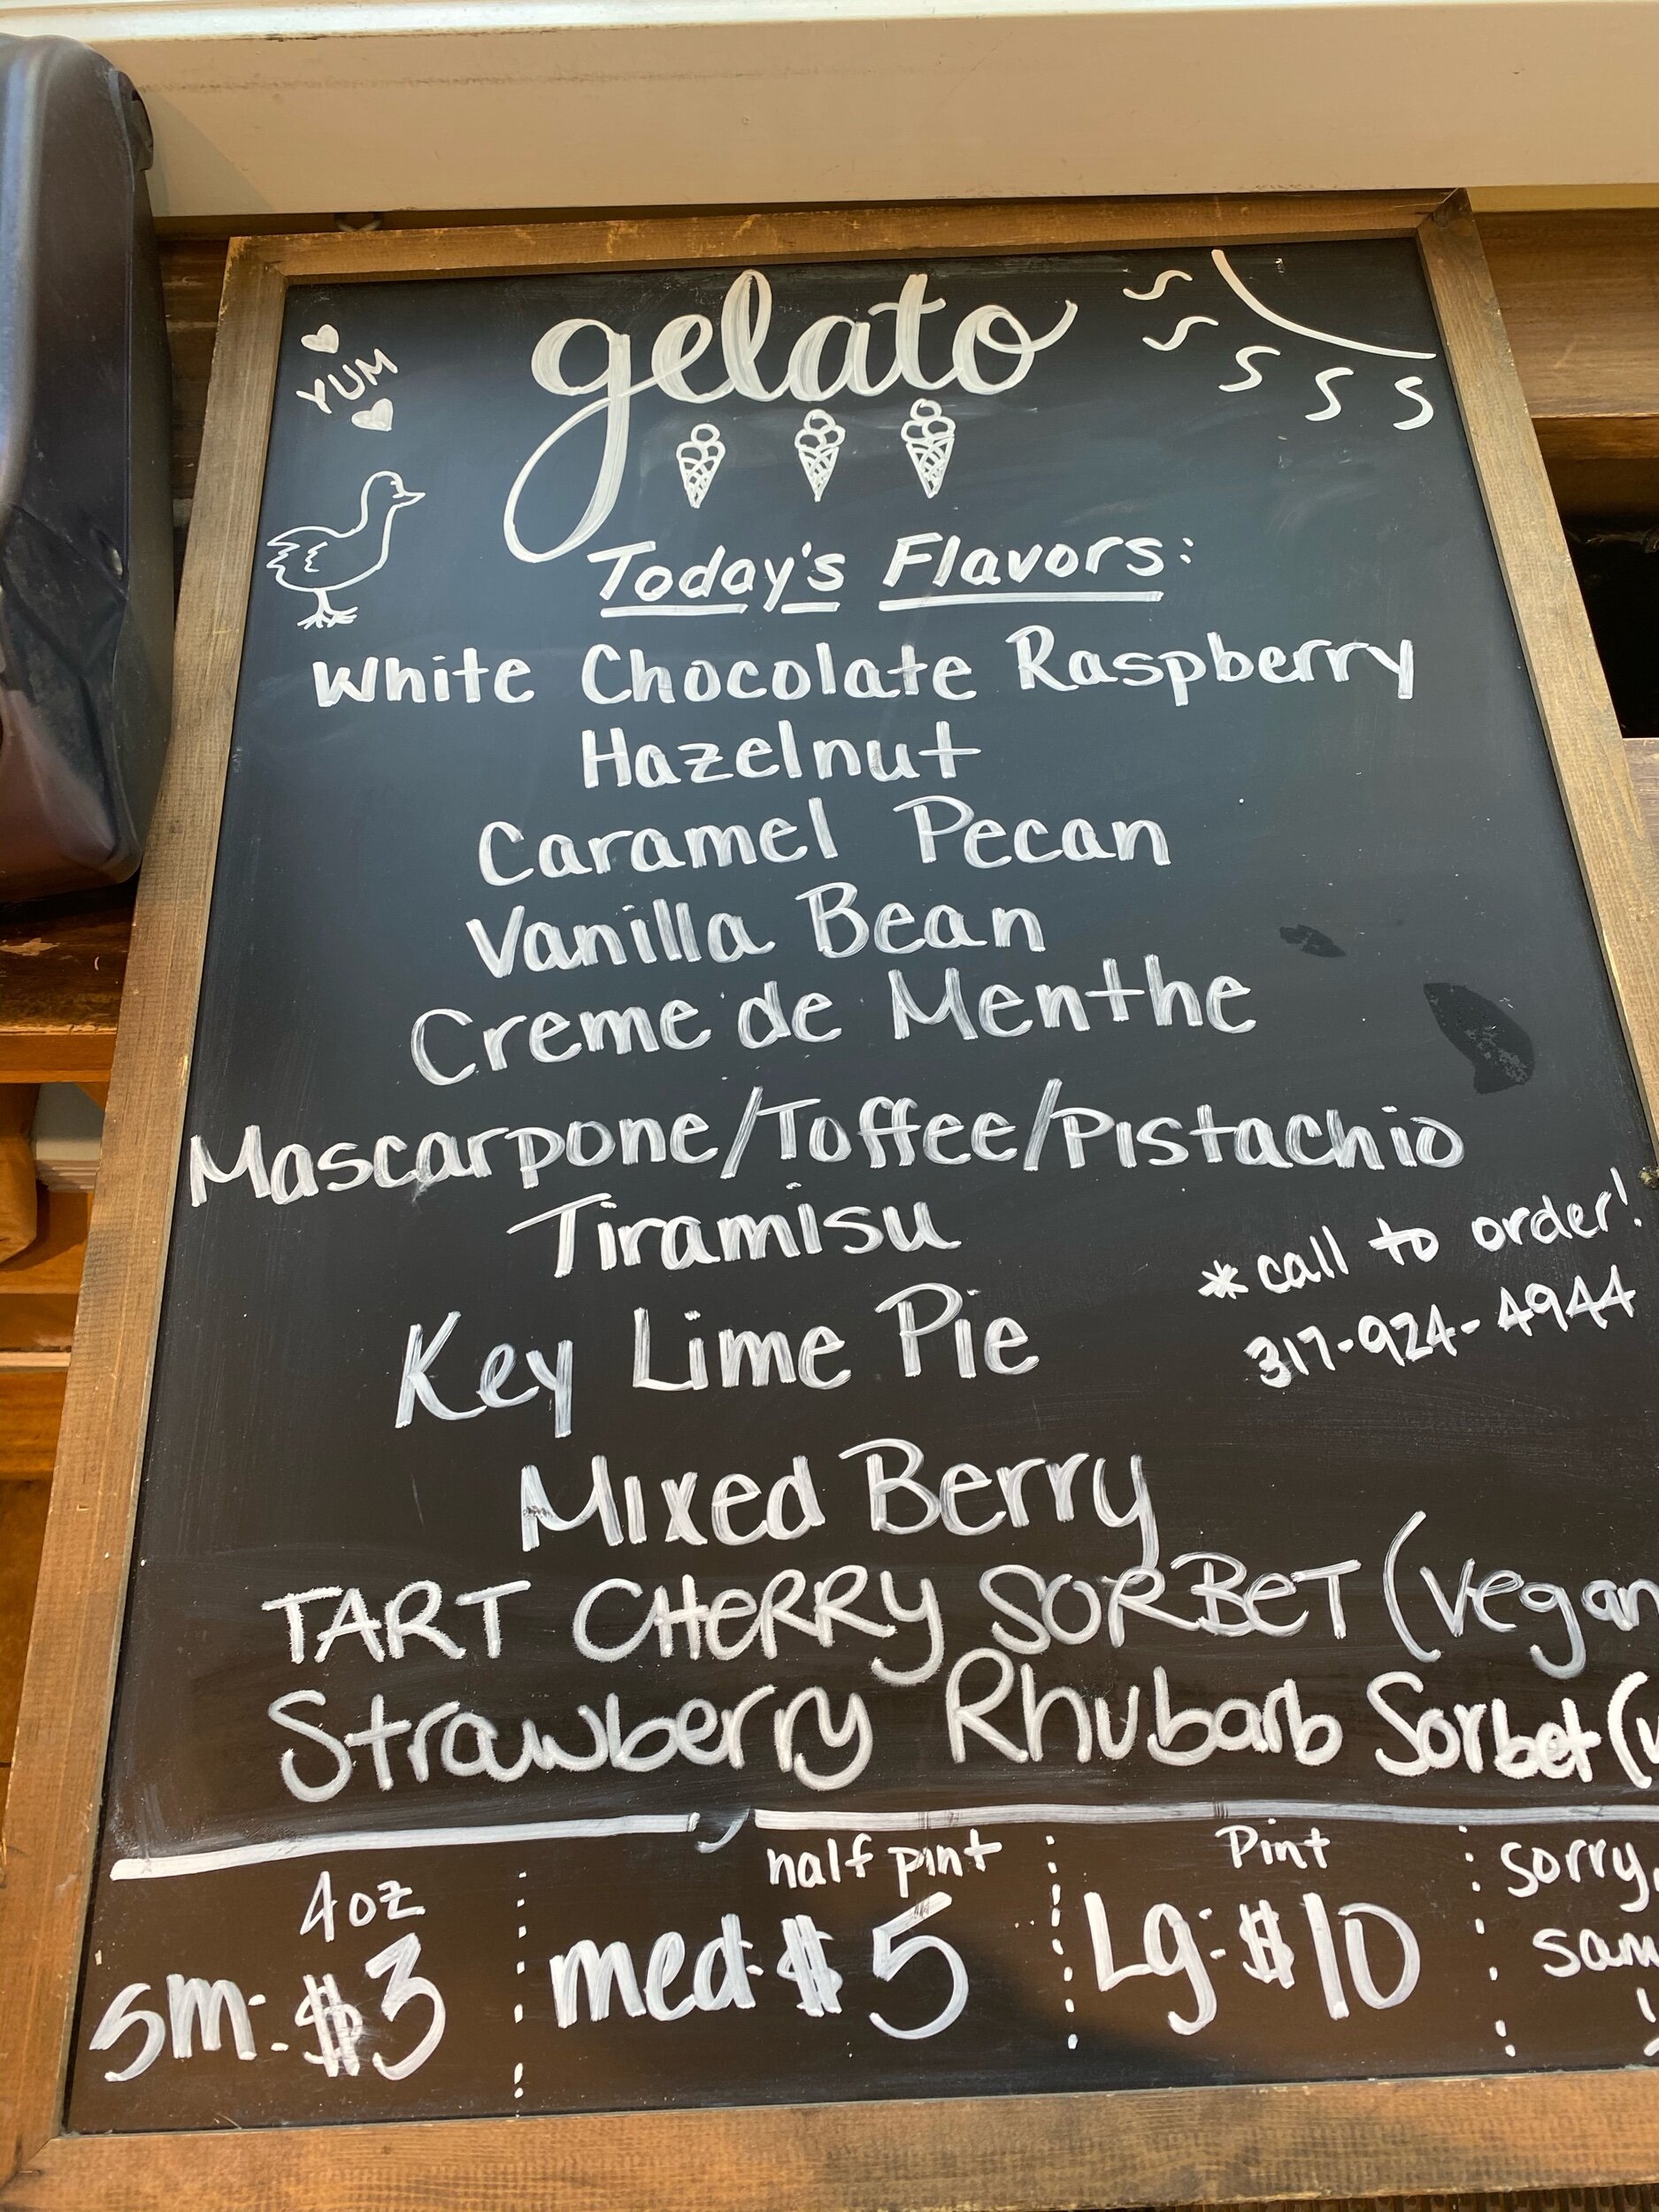 gelato
YUM
Today's Flavors:
White Chocolate Raspberry
Hazelnut
Caramel Pecan
Vanilla Bean
Creme de Menthe
Mascarpone/Toffee/Pistachio
Tiramisu
Key Lime Pie
*call to order!
317-924-4944
Mixed Berry
TART CHERRY SORBET (vegan
Strawberry Rhubarb Sorbet (v
4oz
sm: $3
half pint
med: $5
Pint
Lg: $10
sorry,